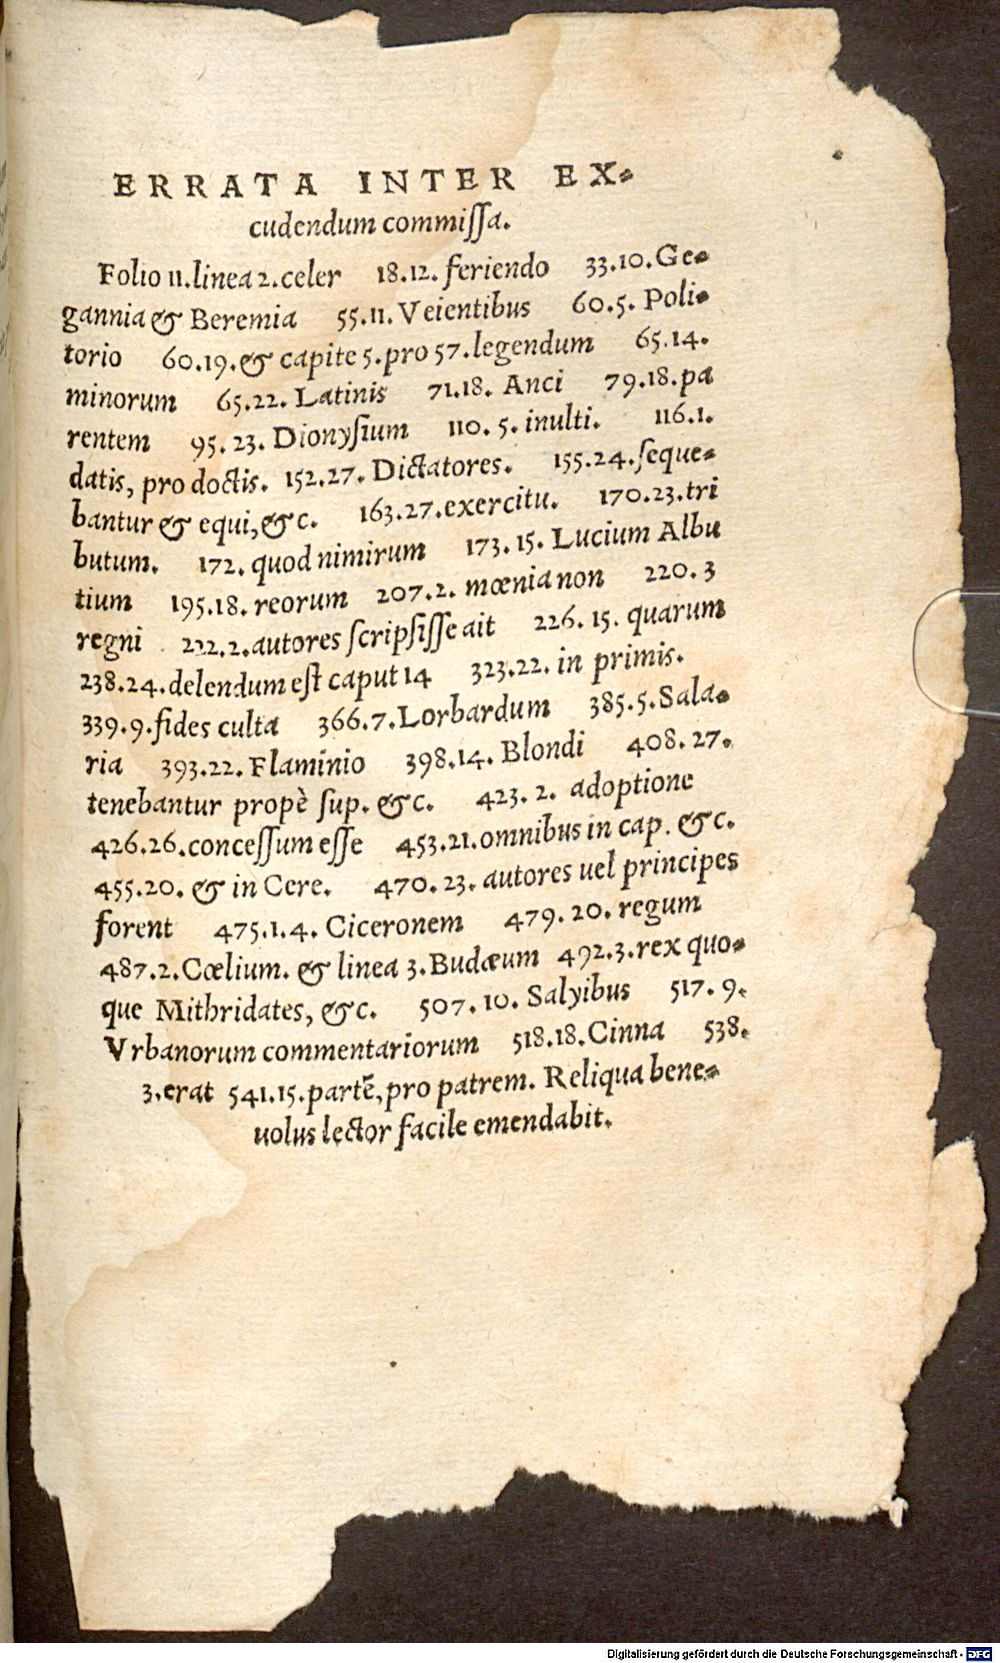 ERRATA INTER EX-
cudendum commiſſa.
Folio 11.linea 2.celer 18.12. feriendo 33.10.Ge-
gannia & Beremia 55.11. Veientibus 60.5. Poli-
torio 60.19.& capite 5.pro 57.legendum 65.14.
minorum 65.22. Latinis 71.18. Anci 79.18.pa
rentem 95.23. Dionyſium 110.5. inulti. 116.1.
datis, pro doctis. 152.27. Dictatores. 155.24.ſeque-
bantur & equi,&c. 163.27.exercitu. 170.23.tri
butum. 172. quod nimirum 173.15. Lucium Albu
tium 195.18. reorum 207.2. mœnia non 220.3
regni 222.2.autores ſcripſiſſe ait 226.15. quarum
238.24.delendum eſt caput 14 323.22. in primis.
339.9.fides culta 366.7.Lorbardum 385.5.Sala-
ria 393.22. Flaminio 398.14. Blondi 408.27.
tenebantur propè ſup. &c. 423.2. adoptione
426.26.conceſſum eſſe 453.21.omnibus in cap. &c.
455.20. & in Cere. 470.23. autores uel principes
forent 475.1.4. Ciceronem 479.20. regum
487.2.Cœlium. & linea 3.Budæum 492.3.rex quo-
que Mithridates, &c. 507.10. Salyibus 517.9.
Vrbanorum commentariorum 518.18.Cinna 538.
3.erat 541.15.partē,pro patrem. Reliqua bene-
uolus lector facile emendabit.
Digitalisierung gefördert durch die Deutsche Forschungsgemeinschaft - DFG